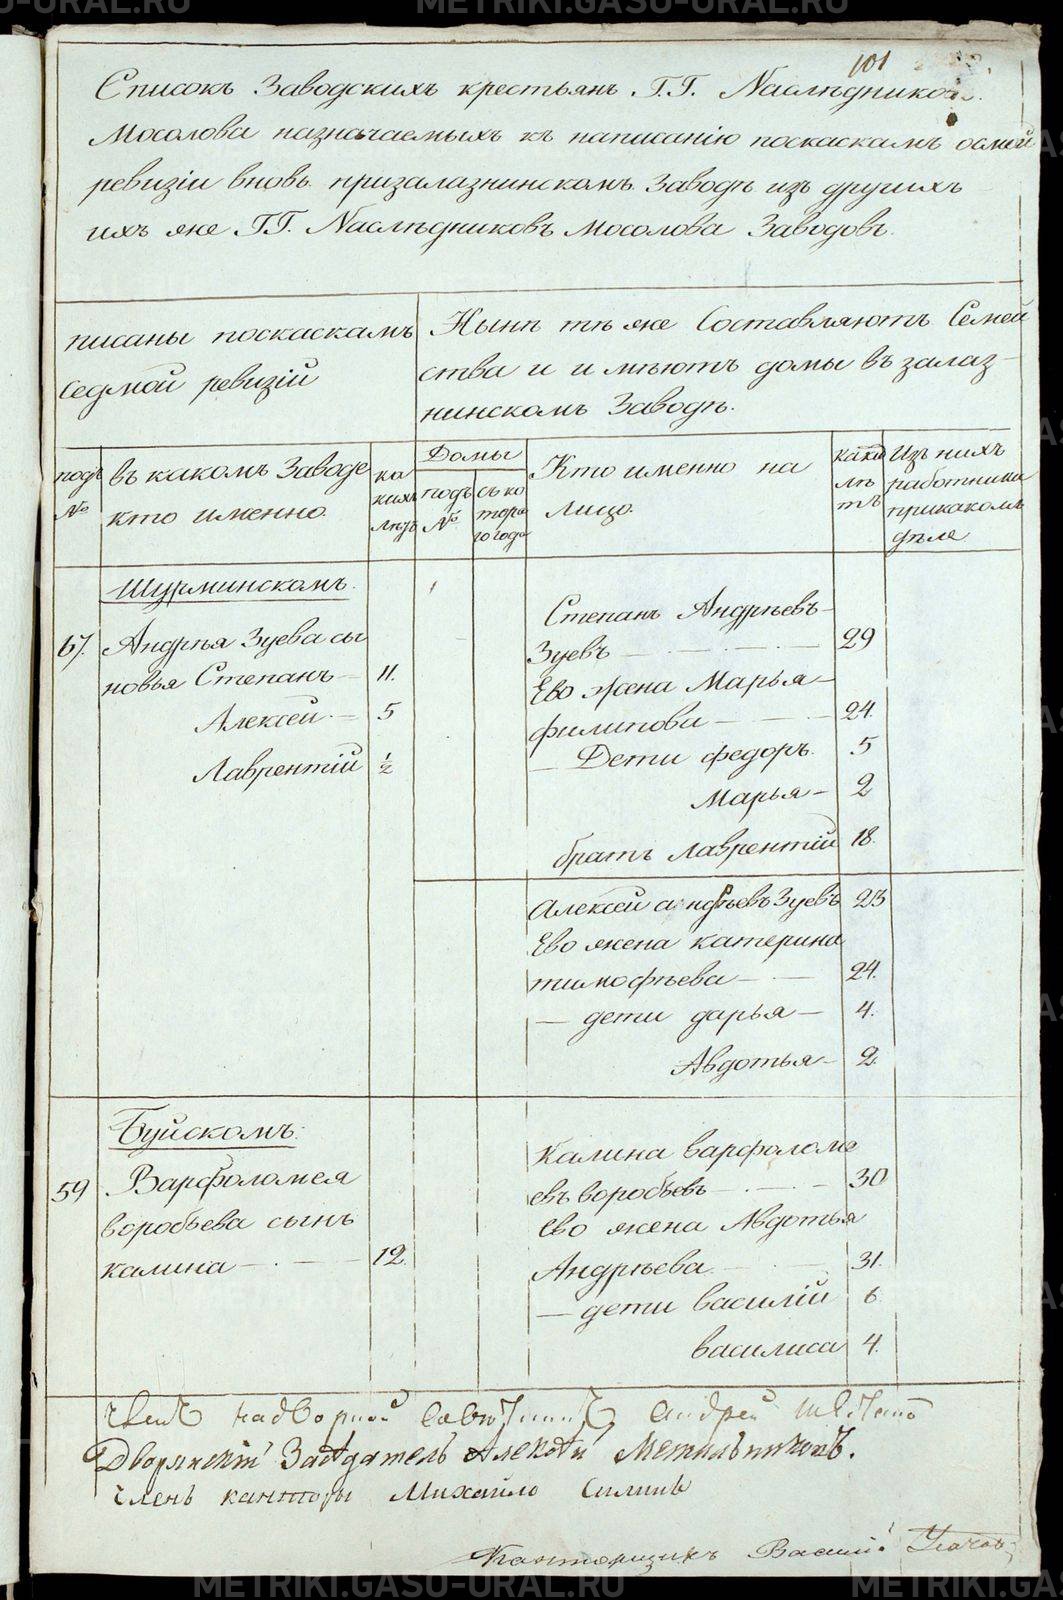 METRIKI.GASU-URAL.RU
101
Списокъ Заводскихъ крестьянъ Г.Г. Наслѣдниковъ
Мосолова назначаемыхъ къ написанію поскаскамъ осмой
ревизіи вновь призалазнинскомъ Заводѣ изъ другихъ
ихъ же Г.Г. Наслѣдниковъ Мосолова Заводовъ.
писаны поскаскамъ
седмой ревизіи
Нынѣ тѣ же Составляютъ Семей
ства и имѣютъ домы въ залаз-
нинскомъ Заводѣ.
подъ №
въ какомъ Заводе
кто именно.
ко
кихъ
лѣтъ
Домы
подъ №
съ ко
тора
го года
Кто именно на
лицо.
како
лѣ
тъ
Изъ нихъ
работники
прикакомъ
дѣле
Шурминскомъ.
67. Андрѣя Зуева сы
новья Степанъ — 11.
Алексей — 5
Лаврентій 1/2
Степанъ Андрѣевъ —
Зуевъ — 29
Ево жена Марья —
филипова — 24.
— Дети федоръ. 5
Марья — 2
братъ лаврентій 18.
Алексей андрѣевъ Зуевъ 23
Ево жена катерина
тимофѣева — 24.
— дети дарья — 4.
Авдотья — 2.
Буйскомъ.
59 Варфоломея
воробьева сынъ
калина — 12.
Калина варфоломе
евъ воробьевъ — 30
Ево жена Авдотья
Андрѣева — 31.
— дети василій 6
василиса 4.
надворной Советникъ Андрей
Дворянскій Заседатель Алексей Метильниковъ.
членъ канторы Михайло Силинъ
Канторщикъ Василій
METRIKI.GASU-URAL.RU